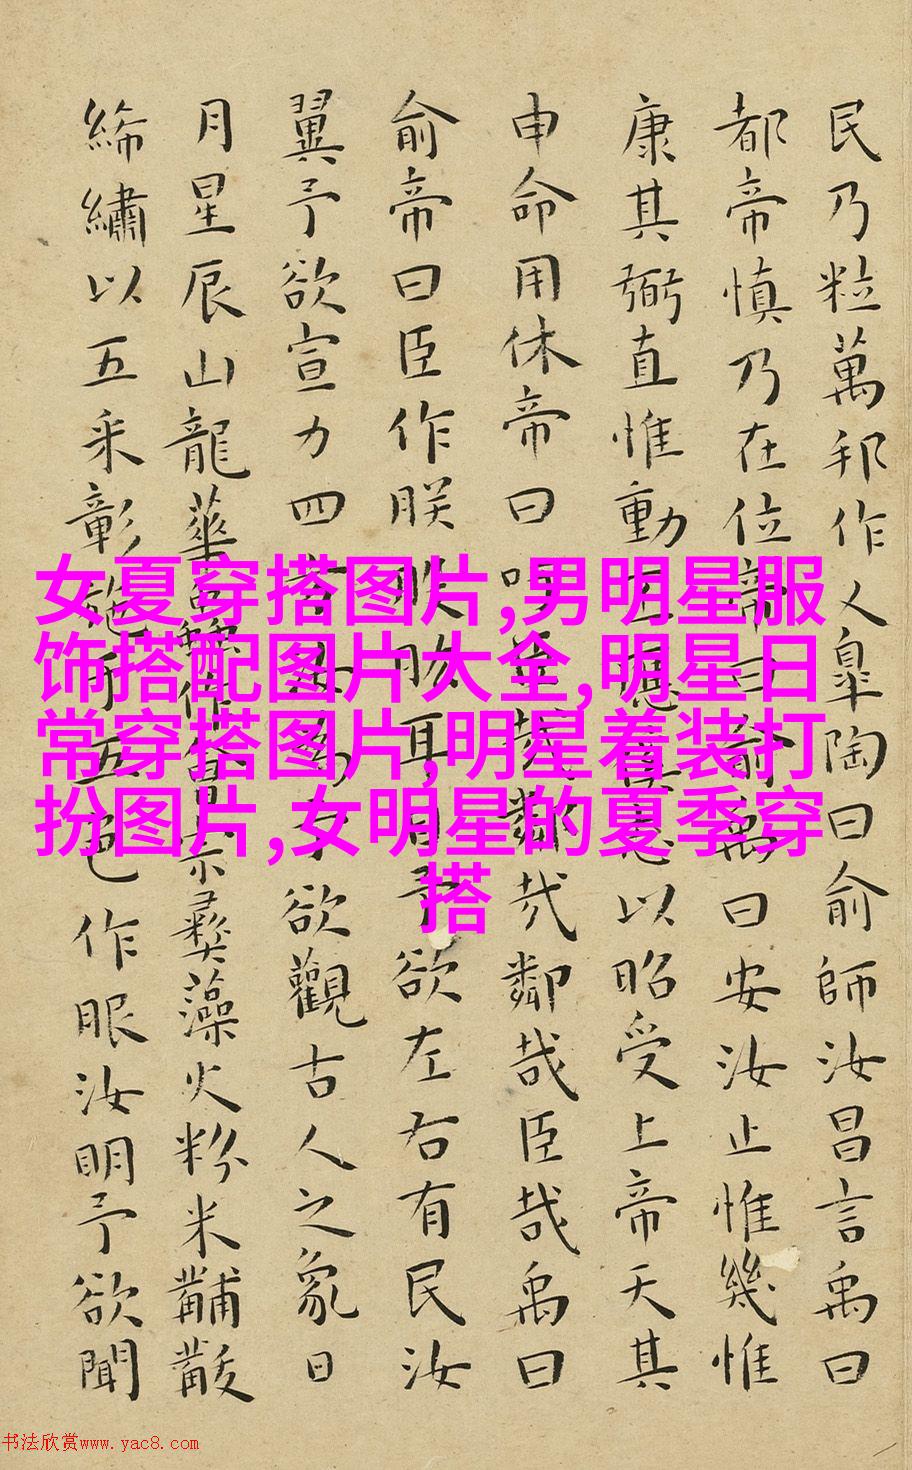 民乃粒萬邦作乂皐陶曰俞師汝昌言禹曰
都帝慎乃在位帝曰俞禹曰安汝止惟幾惟
康其弼直惟動丕應徯志以昭受上帝天其
申命用休帝曰吁臣哉鄰哉鄰哉臣哉禹曰
俞帝曰臣作朕股肱耳目予欲左右有民汝
翼予欲宣力四方汝為予欲觀古人之象日
月星辰山龍華蟲作會宗彝藻火粉米黼黻
絺繡以五采彰施于五色作服汝明予欲聞
女夏穿搭图片,男明星服
饰搭配图片大全,明星日
常穿搭图片,明星着装打
扮图片,女明星的夏季穿
搭
书法欣赏www.yac8.com